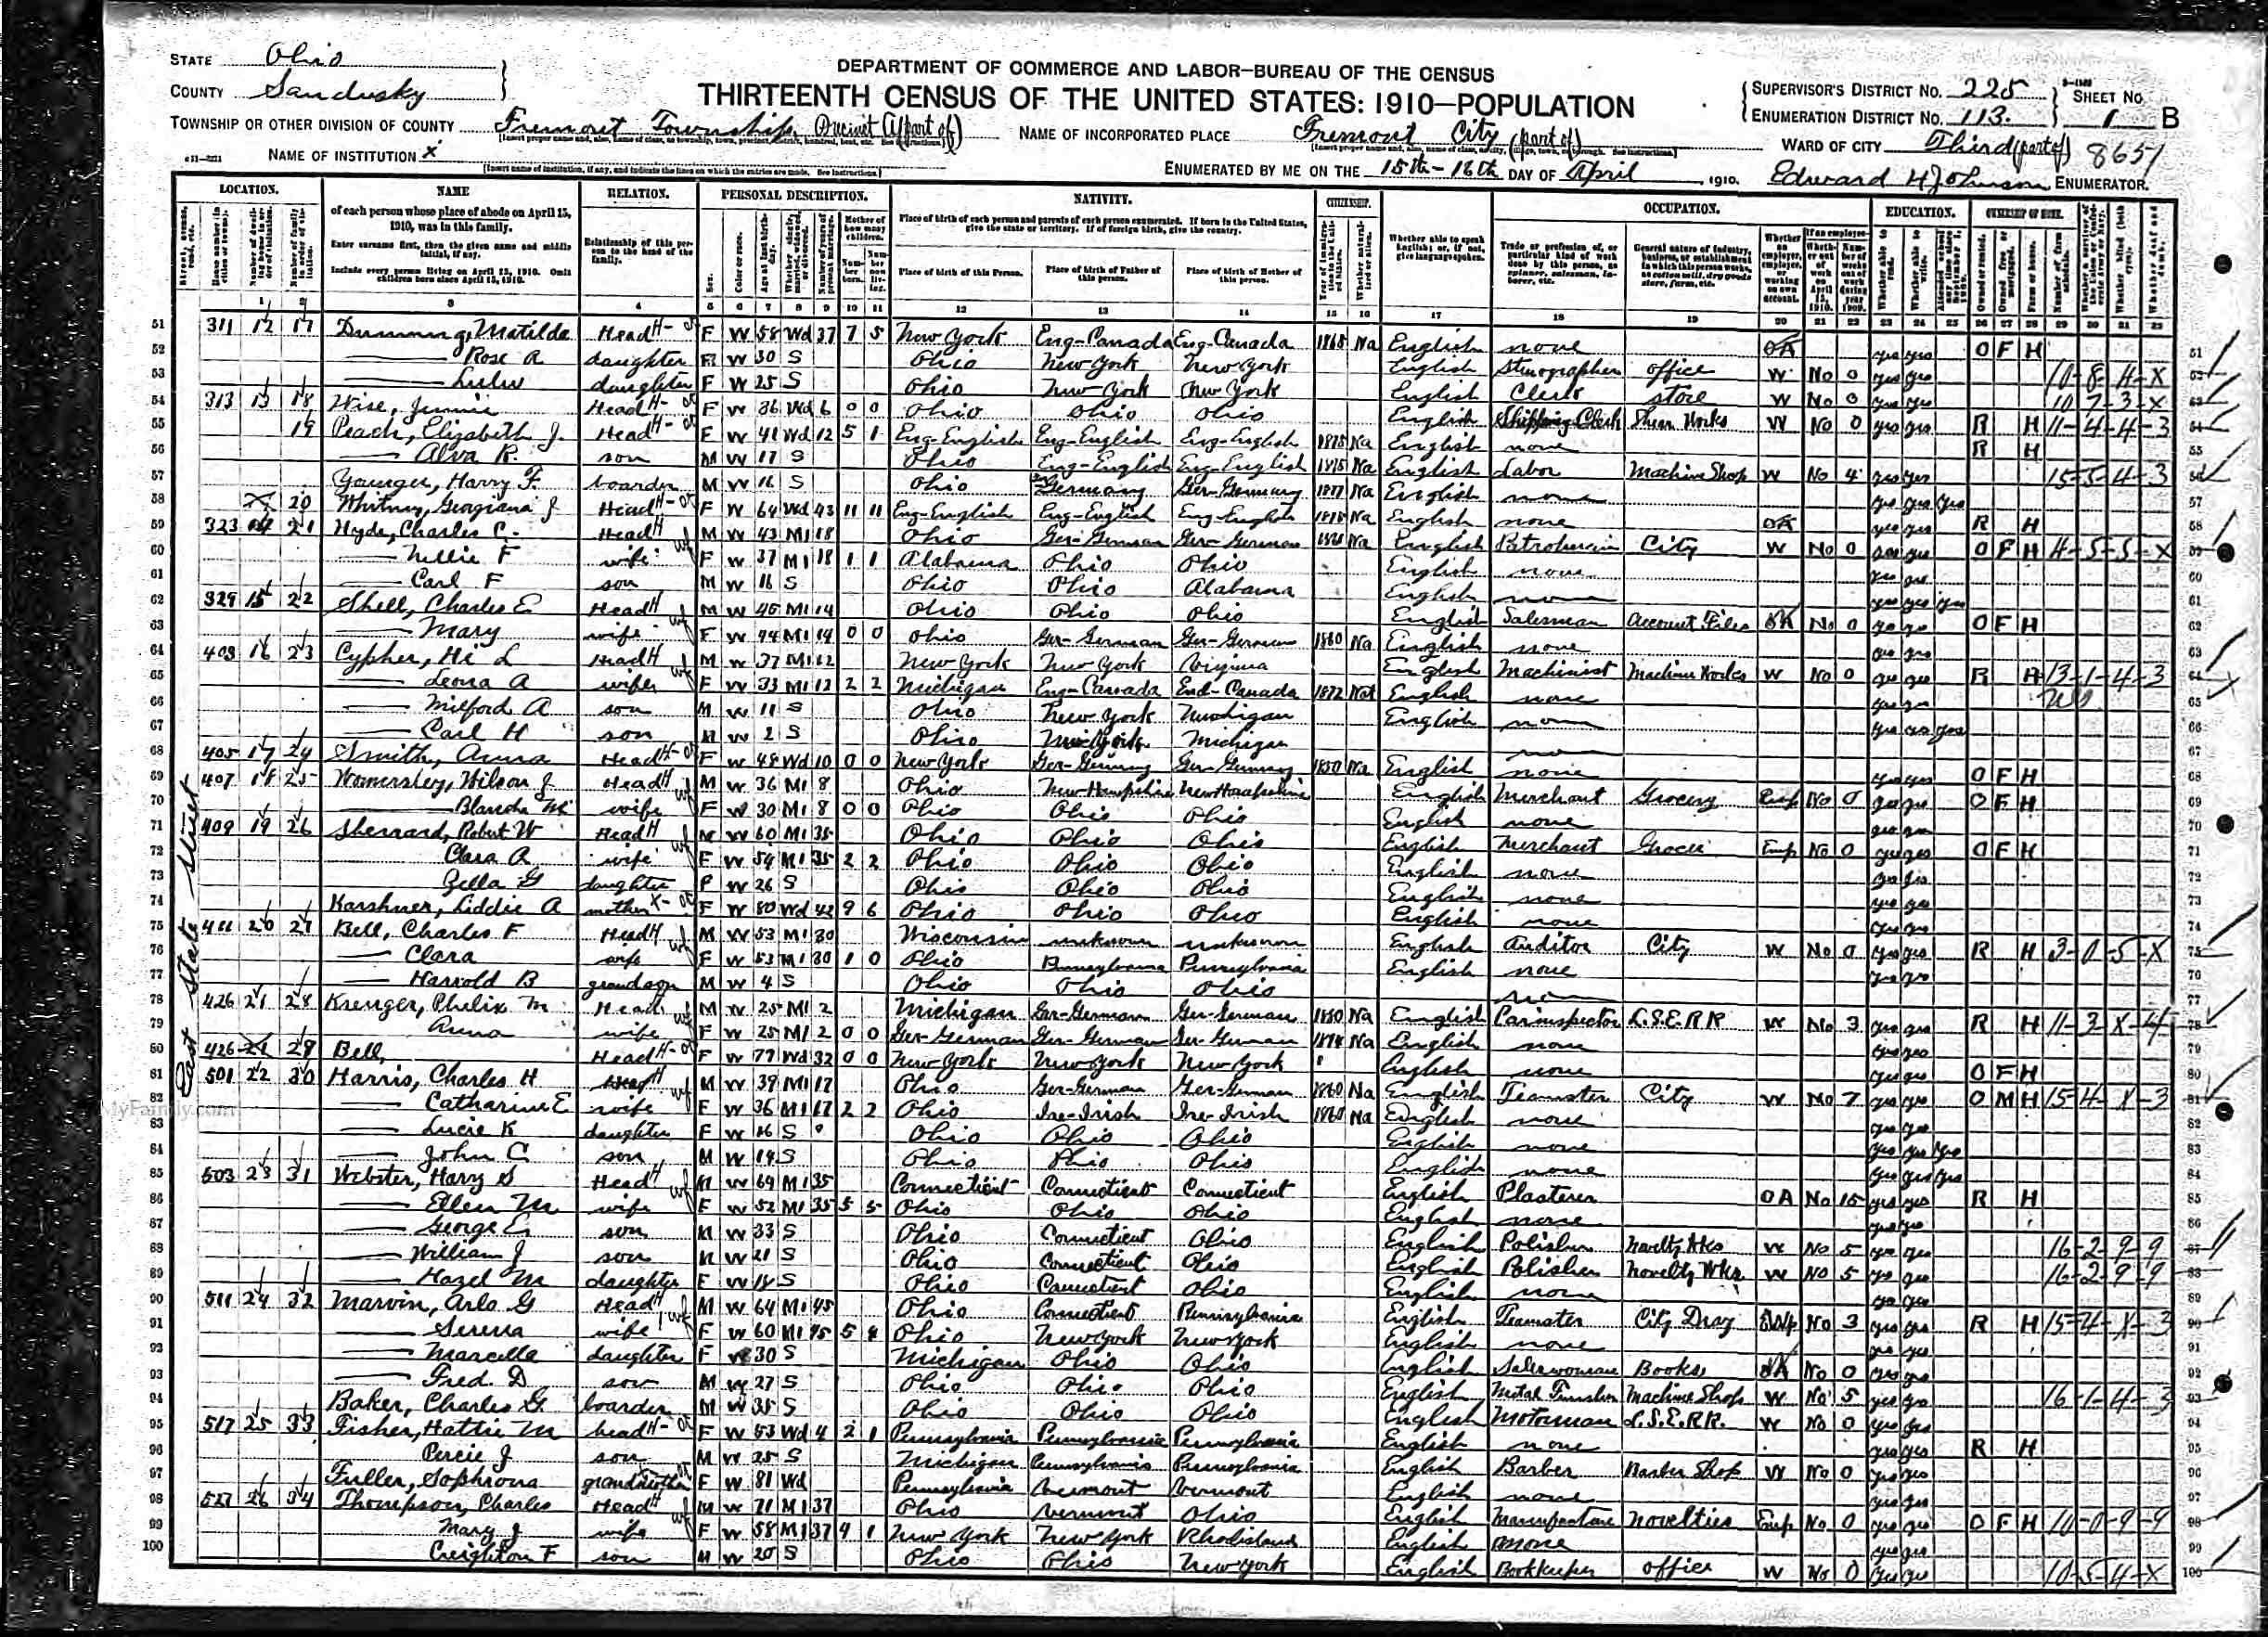 STATE Ohio
COUNTY Sandusky
TOWNSHIP OR OTHER DIVISION OF COUNTY Fremont Township Precinct A (part of)
DEPARTMENT OF COMMERCE AND LABOR—BUREAU OF THE CENSUS
THIRTEENTH CENSUS OF THE UNITED STATES: 1910—POPULATION
NAME OF INCORPORATED PLACE Fremont City (part of)
SUPERVISOR'S DISTRICT No. 225
ENUMERATION DISTRICT No. 113.
SHEET No. 1 B
WARD OF CITY Third (part of) 8651
NAME OF INSTITUTION X
[Insert name of institution, if any, and indicate the lines on which the entries are made. See instructions.]
ENUMERATED BY ME ON THE 15th-16th DAY OF April, 1910. Edward H Johnson ENUMERATOR.
LOCATION. NAME RELATION. PERSONAL DESCRIPTION. NATIVITY. CITIZENSHIP. OCCUPATION. EDUCATION. OWNERSHIP OF HOME.
of each person whose place of abode on April 15, 1910, was in this family.
Enter surname first, then the given name and middle initial, if any.
Include every person living on April 15, 1910. Omit children born since April 15, 1910.
Relationship of this person to the head of the family.
Place of birth of each person and parents of each person enumerated. If born in the United States, give the state or territory. If of foreign birth, give the country.
Place of birth of this Person. Place of birth of Father of this person. Place of birth of Mother of this person.
Whether able to speak English; or, if not, give language spoken.
East State Street
51 311 12 17 Matilda Head F W 58 Wd 37 7 5 New York Eng-Canada Eng-Canada 1865 Na English none O F H
52 Rose A daughter F W 30 S Ohio New York New York English Stenographer office W No 0 yes yes 10-8-4-X
53 Lulu daughter F W 25 S Ohio New York New York English Clerk store W No 0 yes yes 10-7-3-X
54 313 13 18 Wise, Jennie Head F W 36 Wd 6 0 0 Ohio Ohio Ohio English Shipping Clerk Shear Works W No 0 yes yes R H 11-4-4-3
55 19 Peach, Elizabeth J. Head F W 41 Wd 12 5 1 Eng-English Eng-English Eng-English Na English none R H
56 Alva R. son M W 17 S Ohio Eng-English Eng-English Na English Labor Machine Shop W No 4 yes yes 15-5-4-3
57 Younger, Harry F. boarder M W 16 S Ohio Germany Ger-Germany Na English none yes yes yes
58 20 Whitney, Georgiana J Head F W 64 Wd 43 11 11 Eng-English Eng-English Eng-English Na English none yes yes R H
59 323 14 21 Hyde, Charles C. Head M W 43 M1 18 Ohio Ger-German Ger-German Na English Patrolman City W No 0 yes yes O F H 4-5-5-X
60 Nellie F wife F W 37 M1 18 1 1 Alabama Ohio Ohio English none yes yes
61 Carl F son M W 16 S Ohio Ohio Alabama English none yes yes yes
62 329 15 22 Shell, Charles E Head M W 45 M1 14 Ohio Ohio Ohio English Salesman Account Files No 0 yes yes O F H
63 Mary wife F W 44 M1 14 0 0 Ohio Ger-German Ger-German 1860 Na English none yes yes
64 403 16 23 Cypher, Hi L Head M W 37 M1 12 New York New York Virginia English Machinist Machine Works W No 0 yes yes R H 13-1-4-3
65 Leona A wife F W 33 M1 12 2 2 Michigan Eng-Canada Eng-Canada 1872 Nat English none yes yes
66 Milford A son M W 11 S Ohio New York Michigan English none yes yes yes
67 Carl H son M W 2 S Ohio New York Michigan none
68 405 17 24 Smith, Anna Head F W 48 Wd 10 0 0 New York Ger-Germany Ger-Germany 1850 Na English none yes yes O F H
69 407 18 25 Womersley, Wilson J Head M W 36 M1 8 Ohio New Hampshire New Hampshire English Merchant Grocery Emp No 0 yes yes O F H
70 Blanche M wife F W 30 M1 8 0 0 Ohio Ohio Ohio English none yes yes
71 409 19 26 Sherrard, Robert W Head M W 60 M1 35 Ohio Ohio Ohio English Merchant Emp No 0 yes yes O F H
72 Clara A wife F W 54 M1 35 2 2 Ohio Ohio Ohio English none yes yes
73 Zella G daughter F W 26 S Ohio Ohio Ohio English none yes yes
74 Karshner, Liddie A mother F W 80 Wd 42 9 6 Ohio Ohio Ohio English none yes yes
75 411 20 27 Bell, Charles F Head M W 53 M1 30 Wisconsin unknown unknown English Auditor City W No 0 yes yes R H 3-0-5-X
76 Clara wife F W 53 M1 30 1 0 Ohio Pennsylvania Pennsylvania English none yes yes
77 Harrold B grandson M W 4 S Ohio Ohio Ohio none
78 426 21 28 Krenger, Phelix M Head M W 25 M1 2 Michigan Ger-German Ger-German 1880 Na English Car inspector L.S.E.R.R W No 3 yes yes R H 11-3-X-4
79 Anna wife F W 25 M1 2 0 0 Ger-German Ger-German Ger-German Na English none yes yes
80 426 29 Bell, Head F W 77 Wd 32 0 0 New York New York New York English none yes yes O F H
81 501 22 30 Harris, Charles H Head M W 39 M1 17 Ohio Ger-German Ger-German 1860 Na English Teamster City W No 7 yes yes O M H 15-4-X-3
82 Catharine E wife F W 36 M1 17 2 2 Ohio Ire-Irish Ire-Irish 1860 Na English none yes yes
83 Lucie K daughter F W 16 S Ohio Ohio Ohio English none yes yes yes
84 John C son M W 14 S Ohio Ohio Ohio English none yes yes yes
85 503 23 31 Webster, Harry S Head M W 69 M1 35 Connecticut Connecticut Connecticut English Plasterer OA No 15 yes yes R H
86 Ellen M wife F W 52 M1 35 5 5 Ohio Ohio Ohio English none yes yes
87 George E son M W 33 S Ohio Connecticut Ohio English Polisher Novelty Wks W No 5 yes yes 16-2-9-9
88 William J son M W 21 S Ohio Connecticut Ohio English Polisher Novelty Wks W No 5 yes yes 16-2-9-9
89 Hazel M daughter F W 18 S Ohio Connecticut Ohio English none yes yes
90 511 24 32 Marvin, Arlo G Head M W 64 M1 45 Ohio Connecticut Pennsylvania English Teamster City Dray Emp No 3 yes yes R H 15-4-X-3
91 Serena wife F W 60 M1 45 5 4 Ohio New York New York English none yes yes
92 Marcella daughter F W 30 S Michigan Ohio Ohio English Saleswoman Books No 0 yes yes
93 Fred. D son M W 27 S Ohio Ohio Ohio English Metal Finisher Machine Shop W No 5 yes yes 16-1-4-3
94 Baker, Charles G. boarder M W 35 S Ohio Ohio Ohio English Motorman L.S.E.R.R. W No 0 yes yes
95 517 25 33 Fisher, Hattie M head F W 53 Wd 4 2 1 Pennsylvania Pennsylvania Pennsylvania English none yes yes R H
96 Percie J son M W 25 S Michigan Pennsylvania Pennsylvania English Barber Barber Shop W No 0 yes yes
97 Fuller, Sophrona grandmother F W 81 Wd Pennsylvania Vermont Vermont English none yes yes
98 527 26 34 Thompson, Charles Head M W 71 M1 37 Ohio Vermont Ohio English Manufacture Novelties Emp No 0 yes yes O F H 10-0-9-9
99 Mary J wife F W 58 M1 37 4 1 New York New York Rhodisland English none yes yes
100 Creighton F son M W 20 S Ohio Ohio New York English Bookkeeper office W No 0 yes yes 10-5-4-X
MyFamily.com